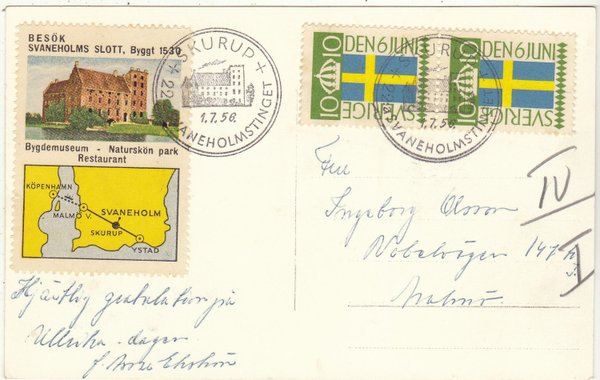 BESÖK
SVANEHOLMS SLOTT, Byggt 1530
Bygdemuseum - Naturskön park
Restaurant
KÖPENHAMN
MALMÖ V.
SVANEHOLM
SKURUP
YSTAD
+ SKURUP +
1.7.56.
SVANEHOLMSTINGET
10 DEN 6 JUNI
10 SVERIGE
10 DEN 6 JUNI
10 SVERIGE
SKURUP
1.7.56.
SVANEHOLMSTINGET
Fru
Ingeborg Olsson
Nobelvägen 147
Malmö
IV
I
Hjärtlig gratulation på
Ullrika-dagen